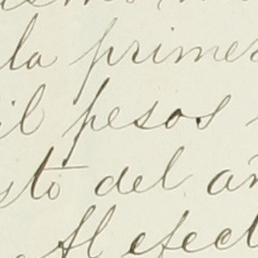 la primer
il pesos
sto del añ
Al efect